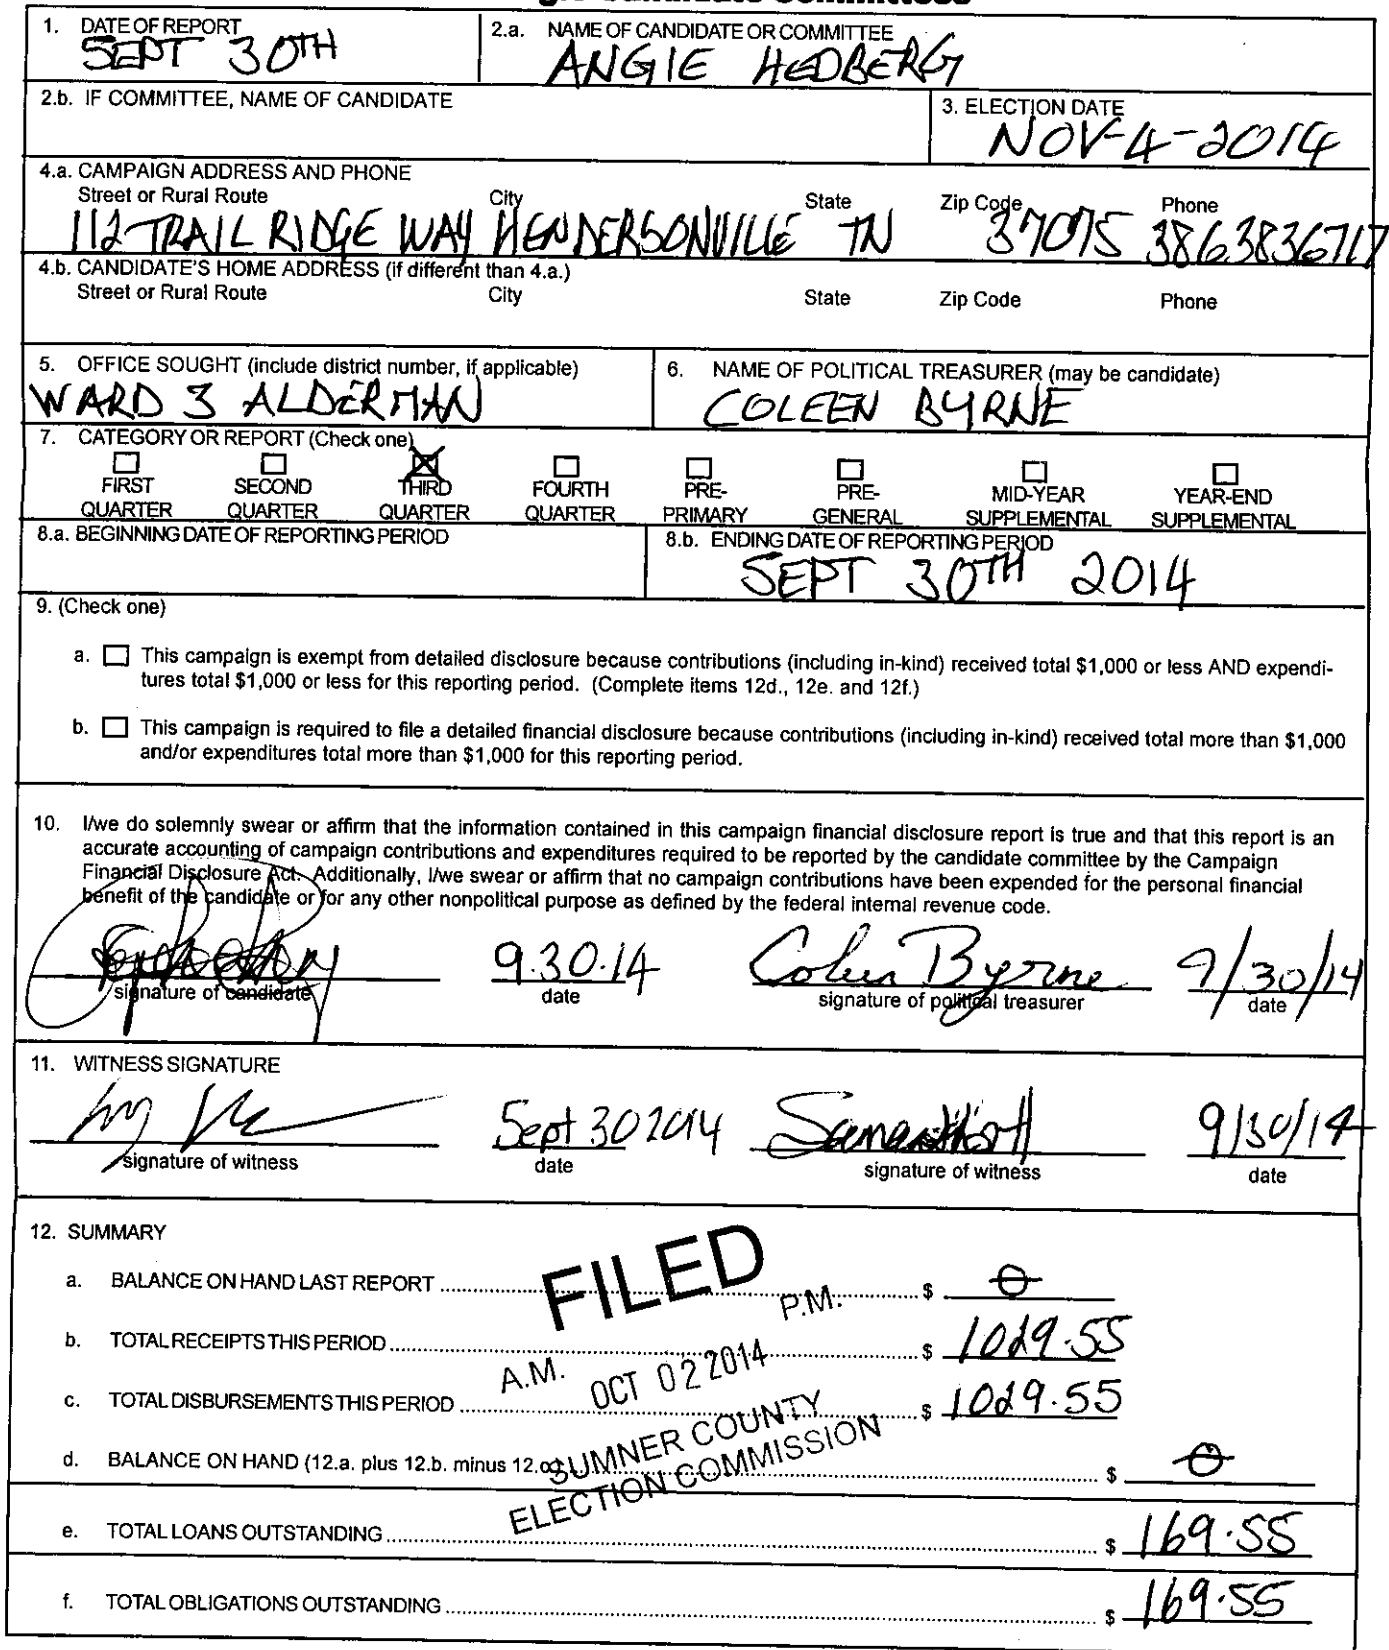 1. DATE OF REPORT
SEPT 30TH
2.a. NAME OF CANDIDATE OR COMMITTEE
ANGIE HEDBERG
2.b. IF COMMITTEE, NAME OF CANDIDATE
3. ELECTION DATE
NOV-4-2014
4.a. CAMPAIGN ADDRESS AND PHONE
Street or Rural Route City State Zip Code Phone
112 TRAIL RIDGE WAY HENDERSONVILLE TN 37075 3863836717
4.b. CANDIDATE'S HOME ADDRESS (if different than 4.a.)
Street or Rural Route City State Zip Code Phone
5. OFFICE SOUGHT (include district number, if applicable)
WARD 3 ALDERMAN
6. NAME OF POLITICAL TREASURER (may be candidate)
COLEEN BYRNE
7. CATEGORY OR REPORT (Check one)
FIRST QUARTER
SECOND QUARTER
THIRD QUARTER
FOURTH QUARTER
PRE-PRIMARY
PRE-GENERAL
MID-YEAR SUPPLEMENTAL
YEAR-END SUPPLEMENTAL
8.a. BEGINNING DATE OF REPORTING PERIOD
8.b. ENDING DATE OF REPORTING PERIOD
SEPT 30TH 2014
9. (Check one)
a. This campaign is exempt from detailed disclosure because contributions (including in-kind) received total $1,000 or less AND expendi-
tures total $1,000 or less for this reporting period. (Complete items 12d., 12e. and 12f.)
b. This campaign is required to file a detailed financial disclosure because contributions (including in-kind) received total more than $1,000
and/or expenditures total more than $1,000 for this reporting period.
10. I/we do solemnly swear or affirm that the information contained in this campaign financial disclosure report is true and that this report is an
accurate accounting of campaign contributions and expenditures required to be reported by the candidate committee by the Campaign
Financial Disclosure Act. Additionally, I/we swear or affirm that no campaign contributions have been expended for the personal financial
benefit of the candidate or for any other nonpolitical purpose as defined by the federal internal revenue code.
9.30.14 Coleen Byrne 9/30/14
signature of candidate date signature of political treasurer date
11. WITNESS SIGNATURE
Sept 30 2014 9/30/14
signature of witness date signature of witness date
12. SUMMARY
a. BALANCE ON HAND LAST REPORT $ 0
b. TOTAL RECEIPTS THIS PERIOD $ 1029.55
c. TOTAL DISBURSEMENTS THIS PERIOD $ 1029.55
d. BALANCE ON HAND (12.a. plus 12.b. minus 12.c.) $ 0
e. TOTAL LOANS OUTSTANDING $ 169.55
f. TOTAL OBLIGATIONS OUTSTANDING $ 169.55
FILED
A.M. OCT 02 2014 P.M.
SUMNER COUNTY
ELECTION COMMISSION